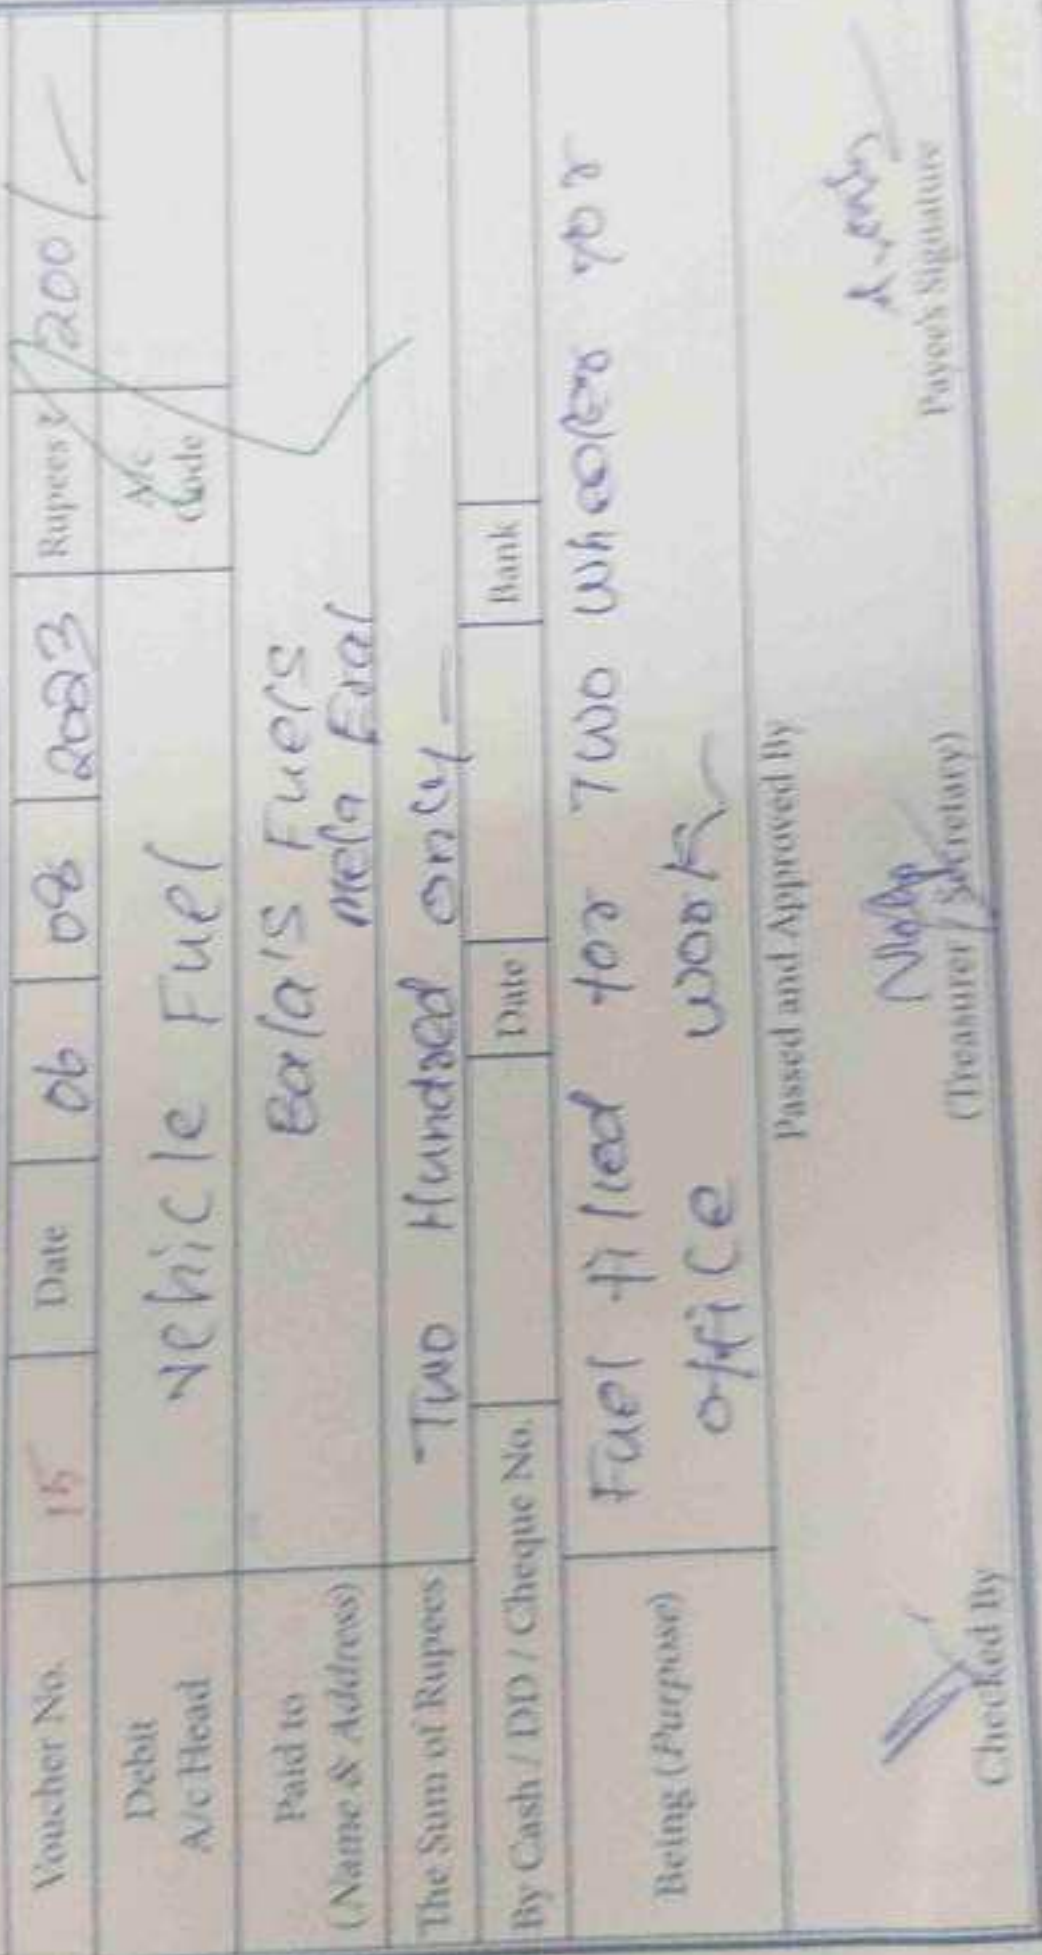 Voucher No. 15 Date 06 08 2023 Rupees ₹ 200/-
Debit
A/c Head
Vehicle Fuel
A/c
Code
Paid to
(Name & Address)
Bala's Fuels
Mela Eral
The Sum of Rupees Two Hundred only
By Cash / DD / Cheque No. Date Bank
Being (Purpose)
Fuel filled for Two wheeler for
office work
Passed and Approved By
Checked By (Treasurer / Secretary) Payee's Signature